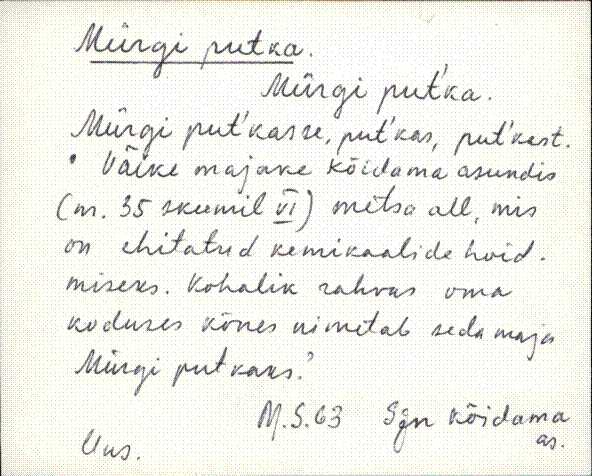 Mürgi putka.
Mürgi put'ka.
Mürgi put'kasse, put'kas, put'kast.
• Väike majake Kõidama asundis
(nr. 35 skeemil VI) metsa all, mis
on ehitatud kemikaalide hoid-
miseks. Kohalik rahvas oma
koduses kõnes nimetab seda maja
Mürgi putkaks.
M.S. 63 Sgn Kõidama
as.
Uus.